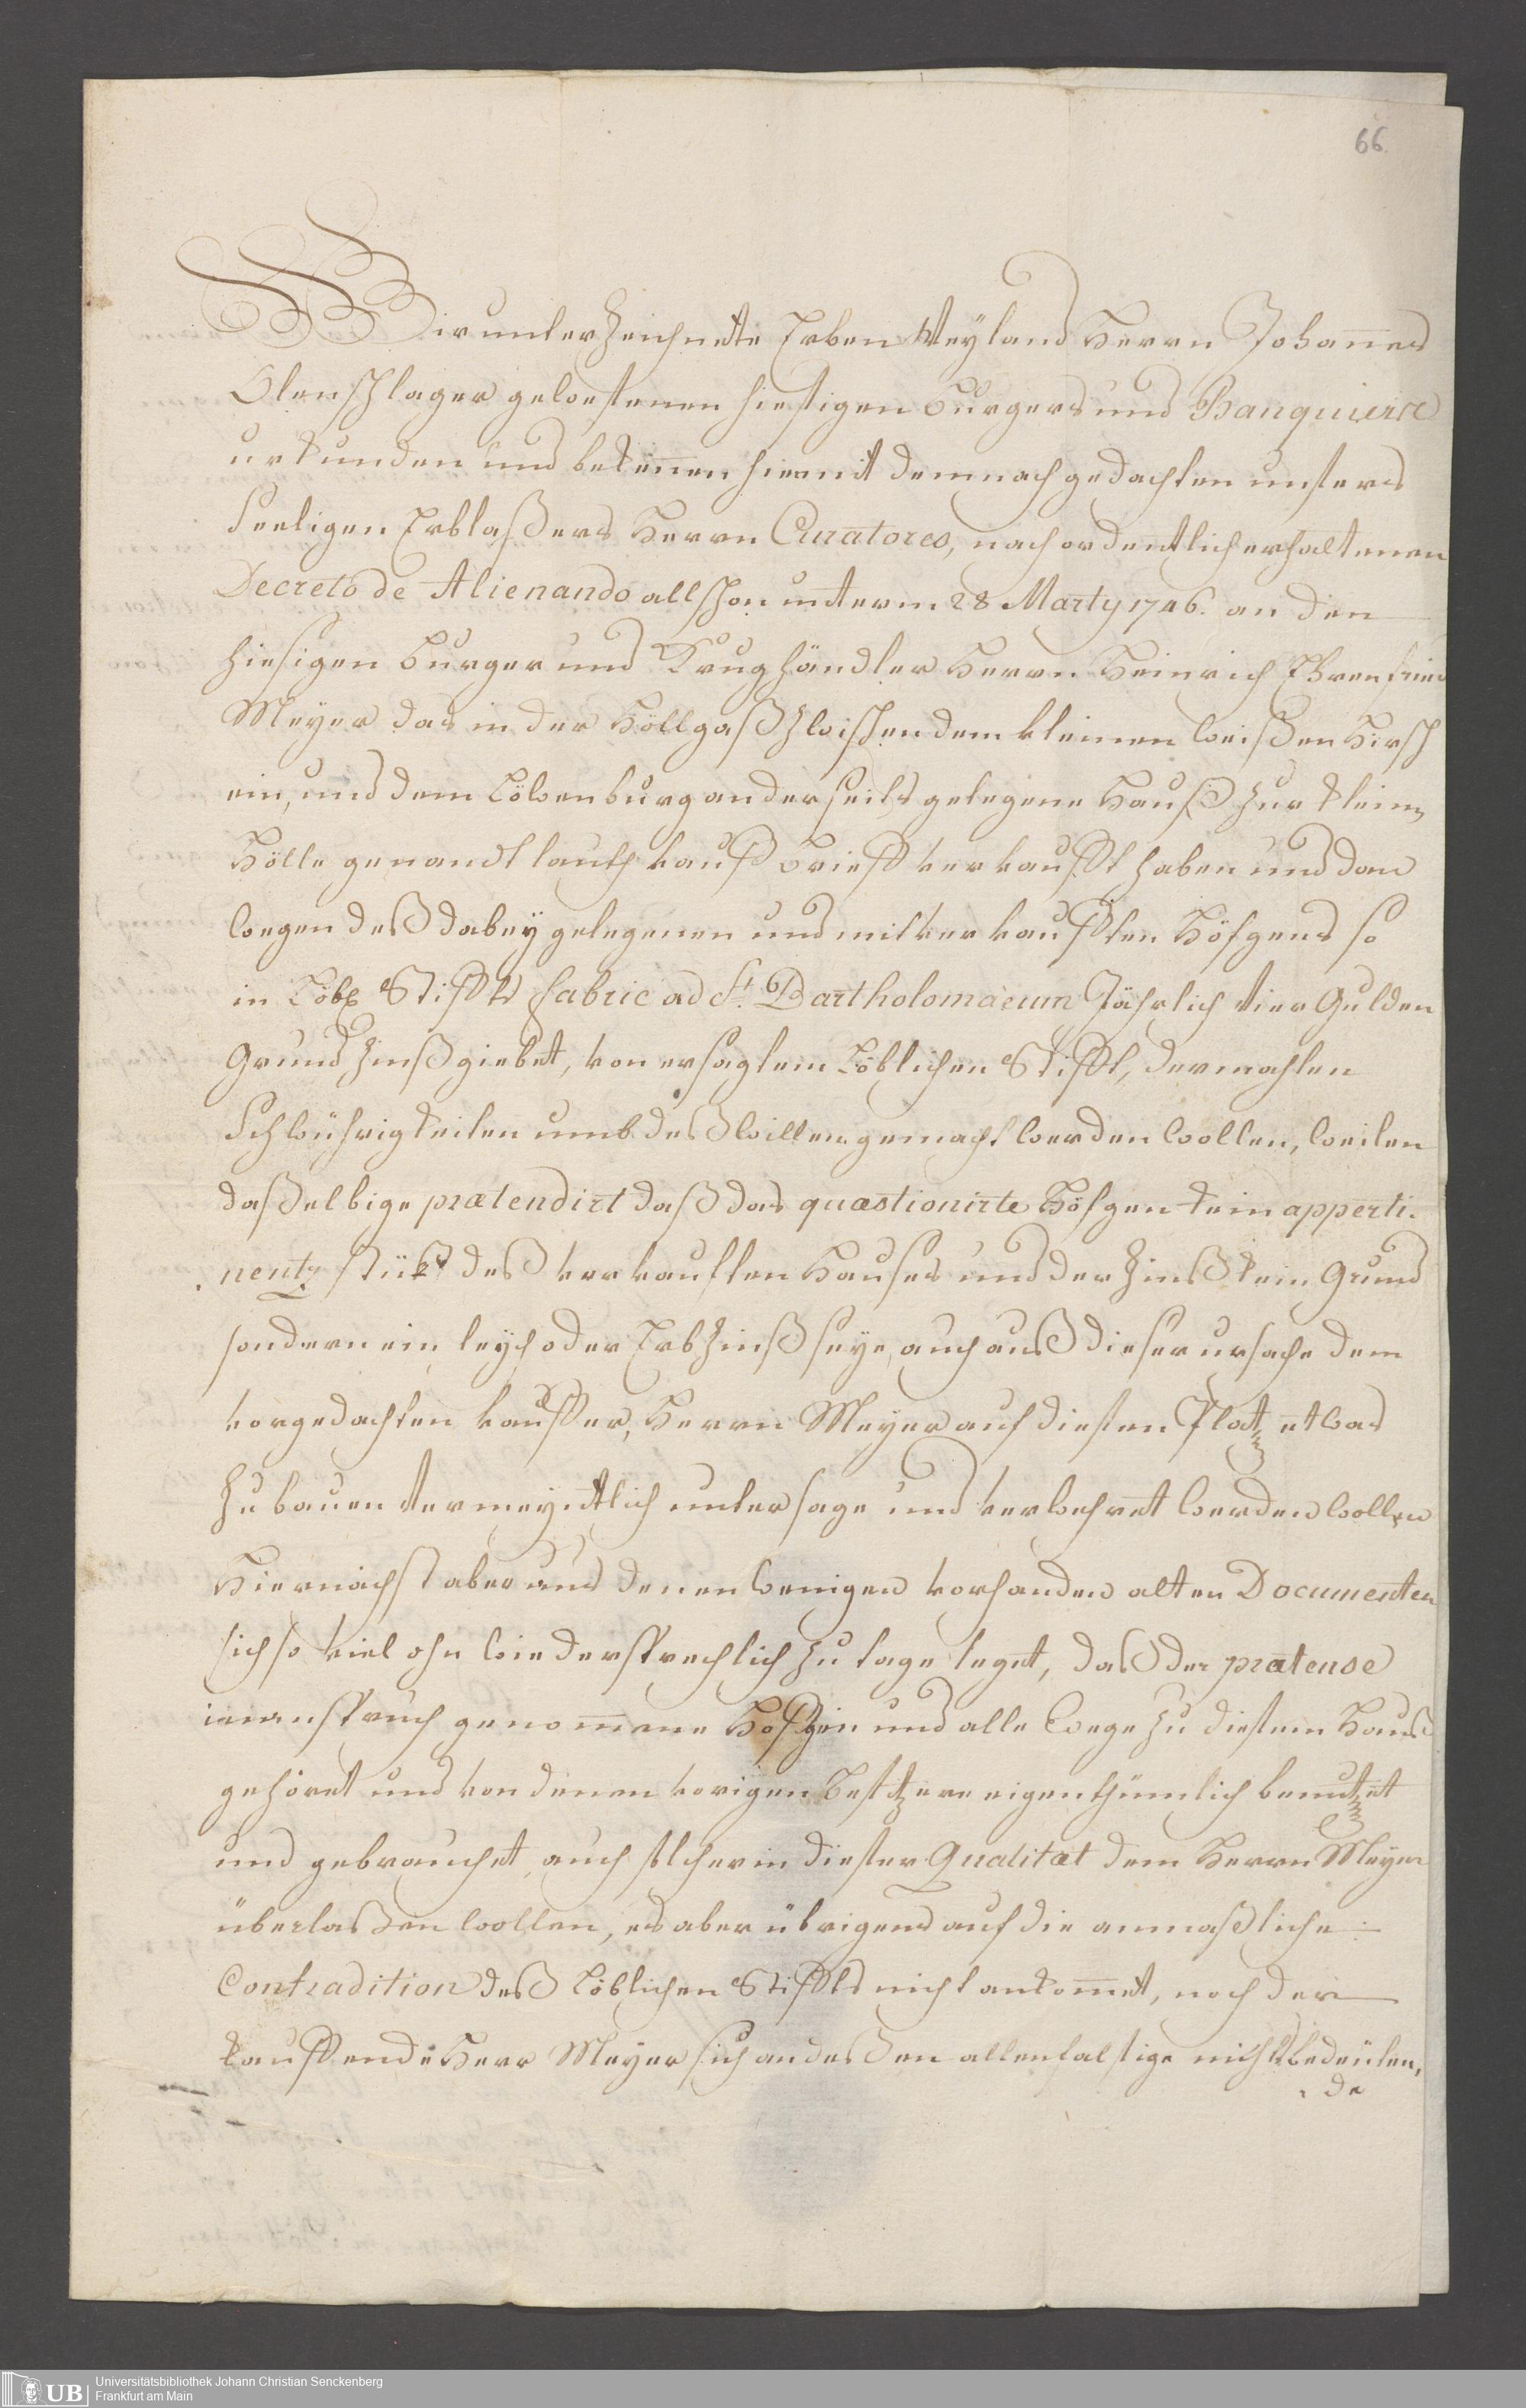 66.
Wir unterzeichnete Erben Weyland Herrn Johannes
Olenschlager gewesenen hiesigen Burgers und Banquiers
urkunden und bekennen hiermit demnach gedachten unsers
Seeligen Erblaßers Herrn Curatores, nach ordentlich erhaltenen
Decreto de Alienando allschon unterm 28 Marty 1746. an den
hiesigen Burger und Krughändler Herrn Heinrich Ehrenfried
Meyer das in der Höllgaß zwischen dem kleinen weißen Hirsch
ein, und dem Löwenburg anderseits gelegene Hauß zur klein
Hölle genandt lauth kauff brieff verkaufft haben und dan
wegen deß dabey gelegenen und mit verkaufften Höfgens so
in Löbl Stiffts fabric ad St. Bartholomaeum Jährlich vier Gulden
Grund Zinß giebet, von ersagtem Löblichen Stifft, dermahlen
Schwührigkeiten umb deßwillen gemacht werden wollen, weilen
daßelbige prætendirt daß das quæstionirte Höfgen kein apperti-
nentz stück deß verkauften Hauses und der Zinß kein Grund
sondern ein leyh oder Erb Zinß seye, auch auß dieser ursache dem
vorgedachten kauffer, Herrn Meyer auf diesen Platz etwas
zu bauen vermeyntlich untersagt und verwehret werden wollen
Hiernächst aber aus denen wenigen vorhanden alten Documenten
sich so viel ohn wiedersprechlich zu tage leget, daß der prætense
in anspruch genommene Höfgen und alle wege zu diesem Hauß
gehöret und von denen vorigen Besitzern eigenthümlich benutzet
und gebrauchet, auch solcher in dieser Qualitæt dem Herrn Meyer
überlaßen wollen, es aber übrigens auf die anmaßliche
Contradition deß Löblichen Stiffts nicht ankommet, noch der
kauffende Herr Meyer sich an deßen allenfalsige nichtsbedeuten,
de
UB
Universitätsbibliothek Johann Christian Senckenberg
Frankfurt am Main